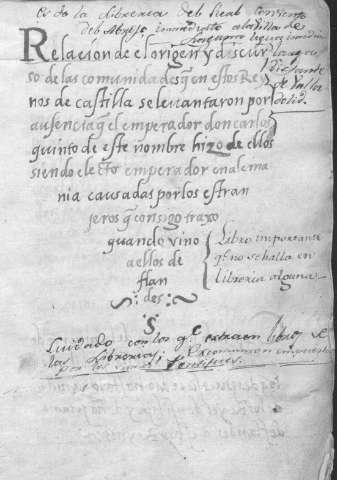 Es de la libreria del Real Convento
del Abrojo inmediato a la villa de
Laguna
Relacion de el origen y discur
so de las comunidades q̃ en estos Rey
nos de castilla se levantaron por
ausencia q̃ el emperador don carlos
quinto de este nombre hizo de ellos
siendo electo emperador en alema
nia causadas por los estran
jeros q̃ consigo traxo
quando vino
a ellos de
flan
des
distante
de Valla
dolid.
Libro importante
q̃. no se halla en
libreria alguna
S
Cuidado con los q̃. extraen libros de
las Librerias; Excomunion impuesta
por los Pontifices.